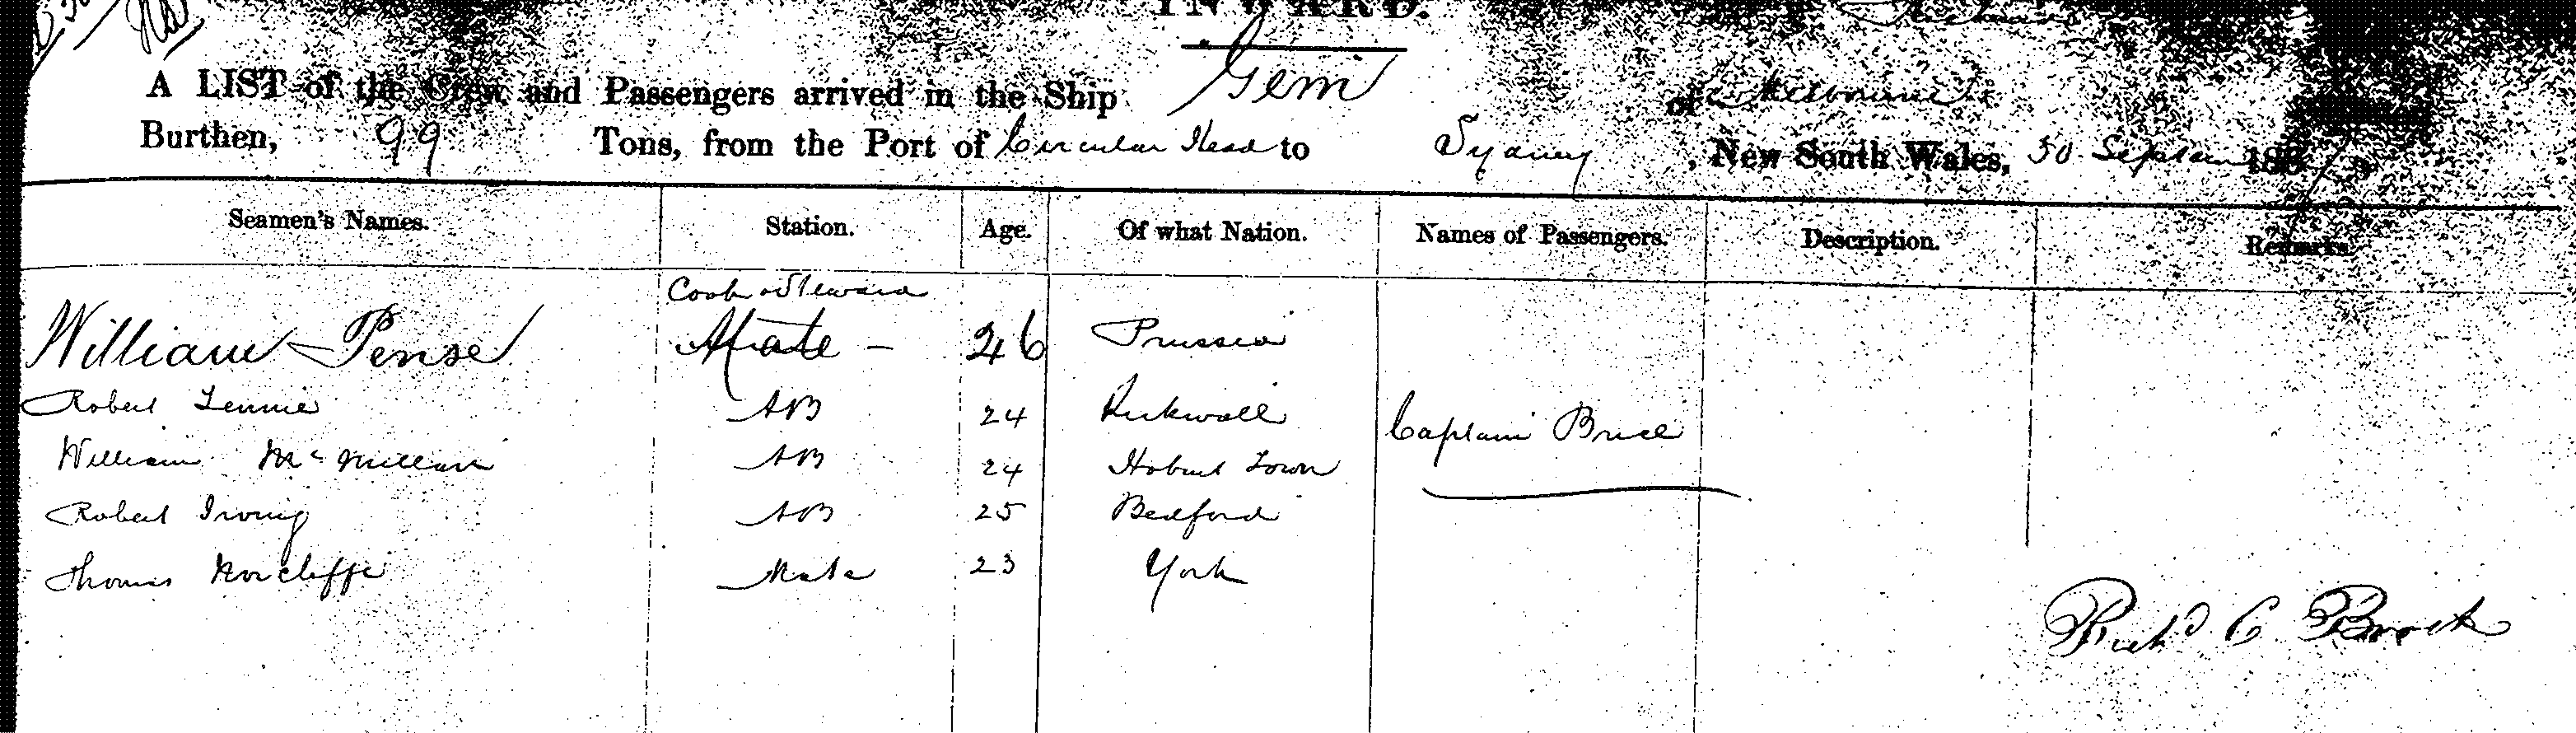 INWARD.
A LIST of the Crew and Passengers arrived in the Ship Gem of Melbourne
Burthen, 99 Tons, from the Port of Circular Head to Sydney, New South Wales, 30 Septem 18
Seamen's Names. Station. Age. Of what Nation. Names of Passengers. Description. Remarks.
Cook & Steward
William Pense Mate – 26 Prussia
Robert Lennie AB 24 Kirkwall
Captain Brice
William McMillan AB 24 Hobart Town
Robert Irving AB 25 Bedford
Thomas Norcliffe Mate 23 York
Richd C Brock